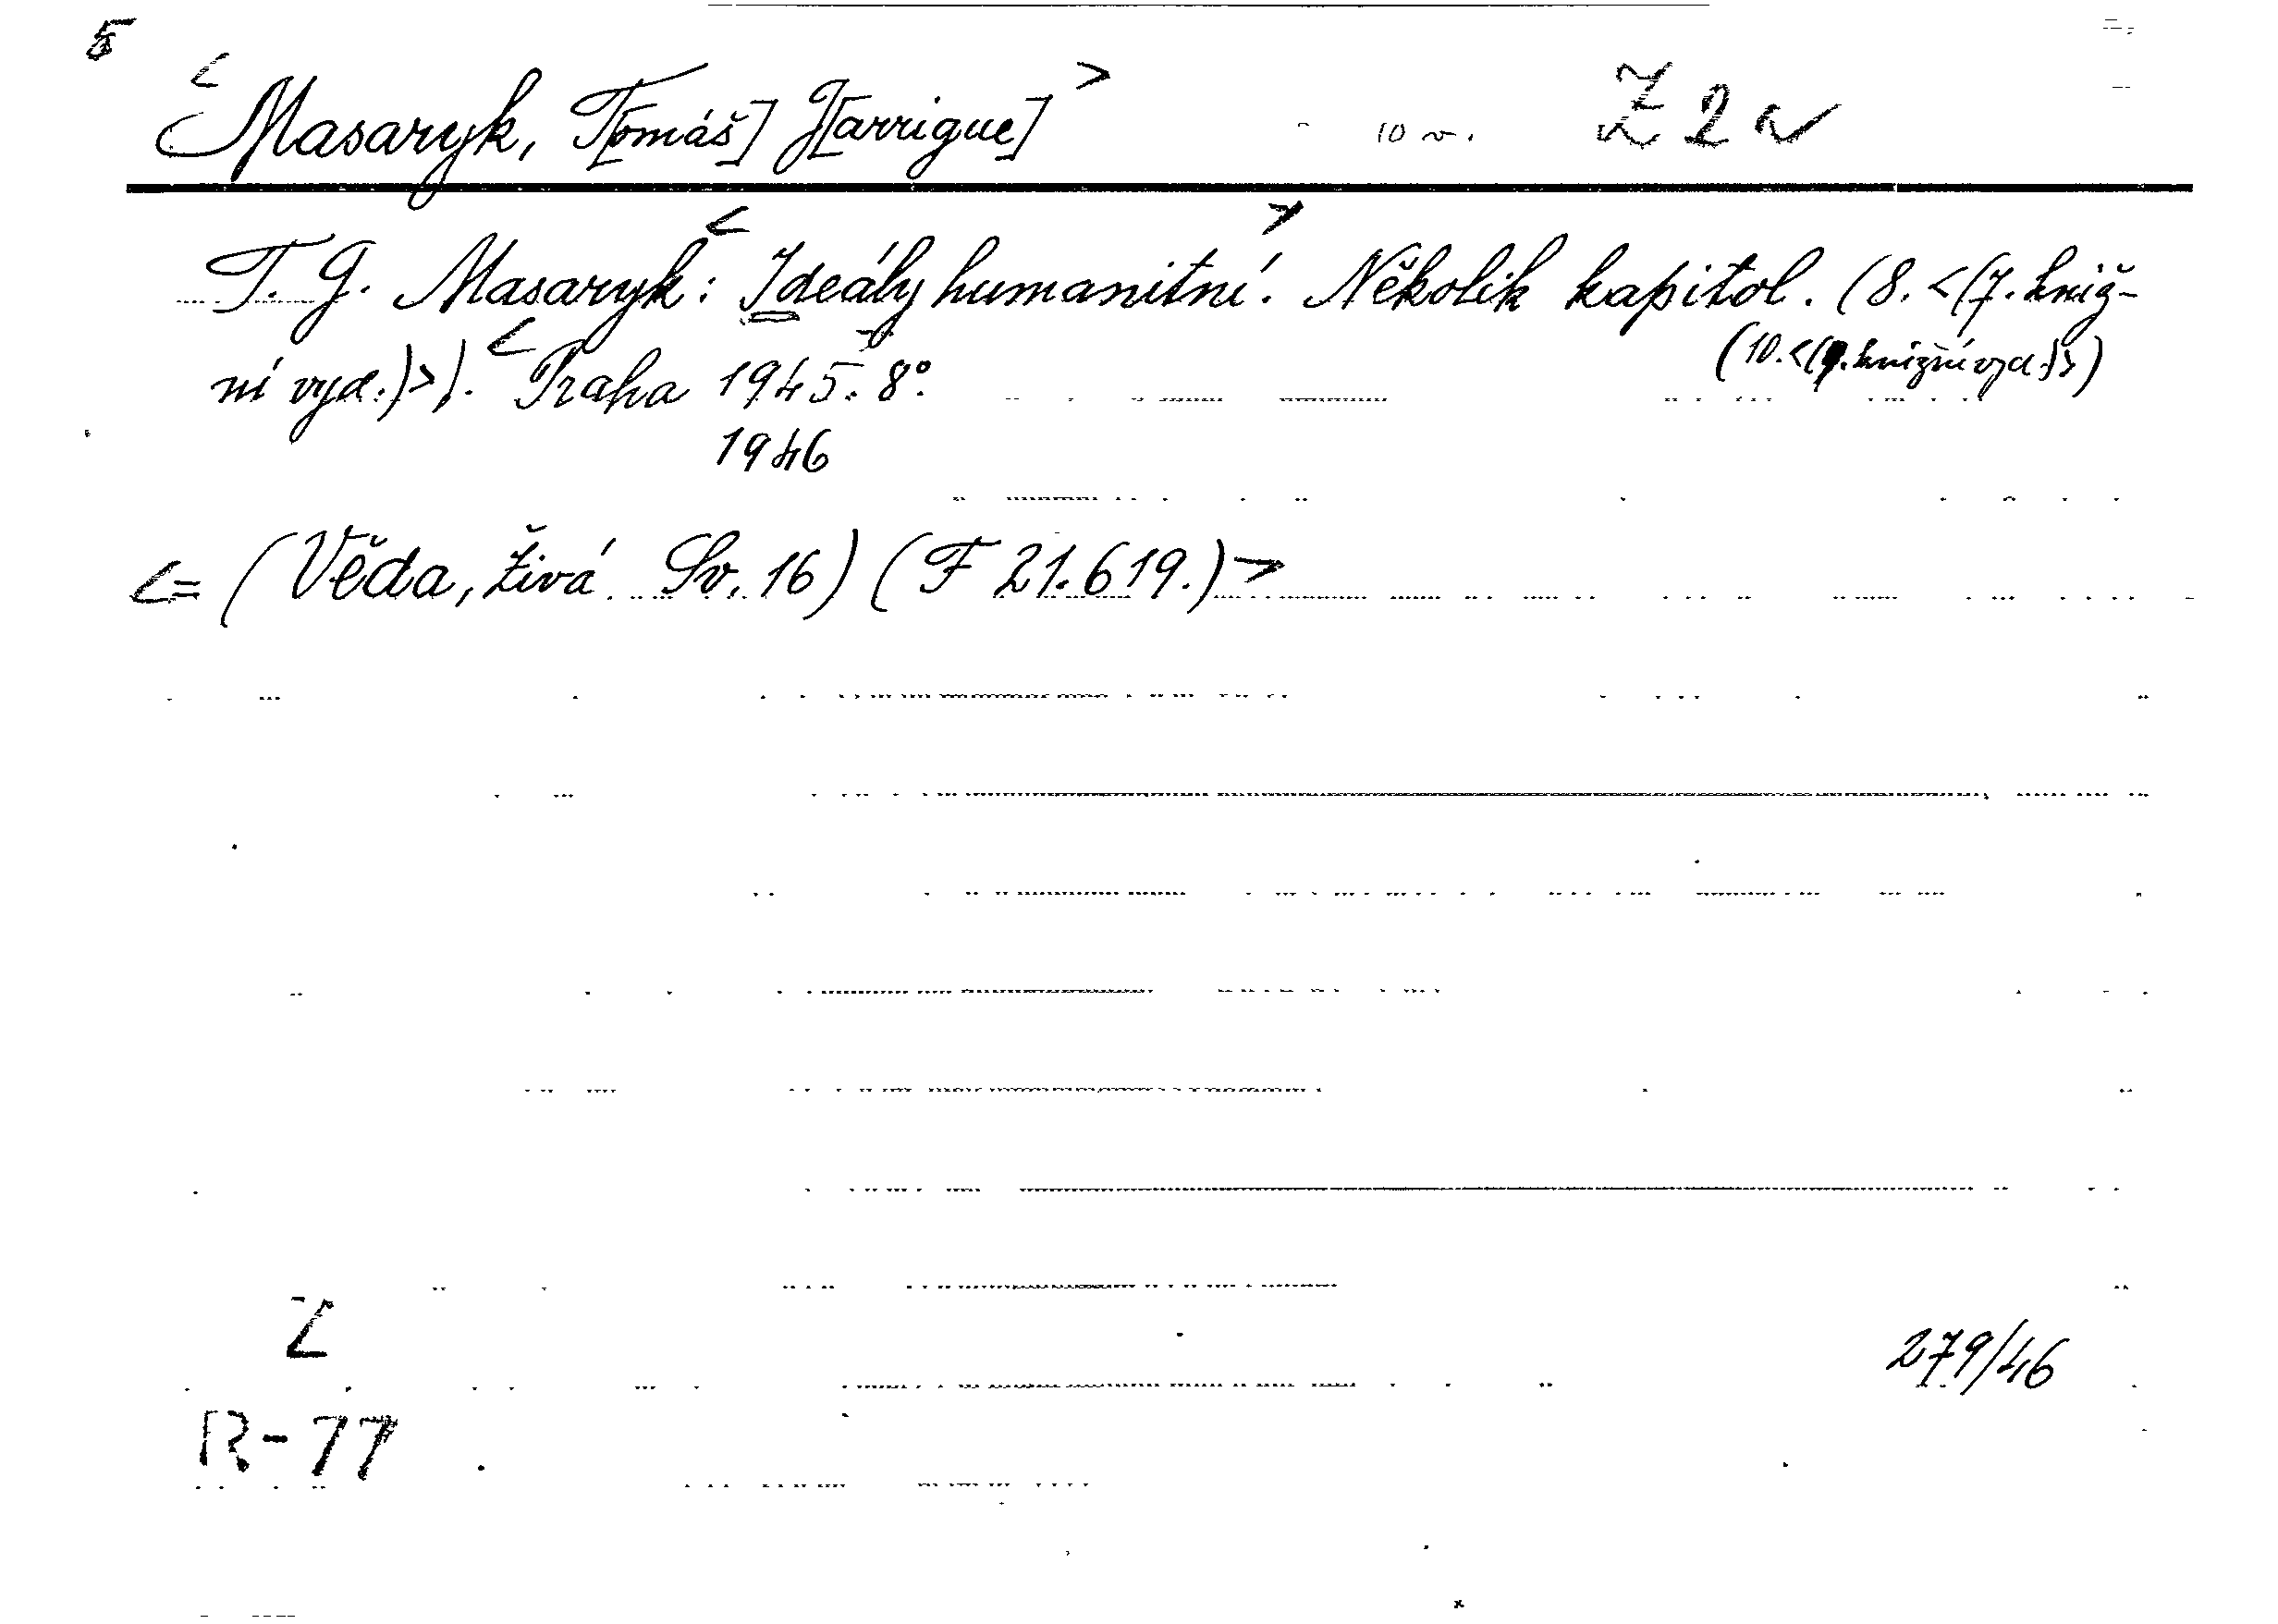 5
<Masaryk, T[omáš] G[arrigue]> 10 v. Z 2 a
T. G. Masaryk: <Ideály humanitní>. Několik kapitol. (8. <(7. kniž-
ní vyd.)>). <Praha 1945. 8°. (10. <(9. knižní vyd.)>)
1946
<= (Věda, živá. Sv. 16) (F 21.619.)>
Z
279/46
R-77